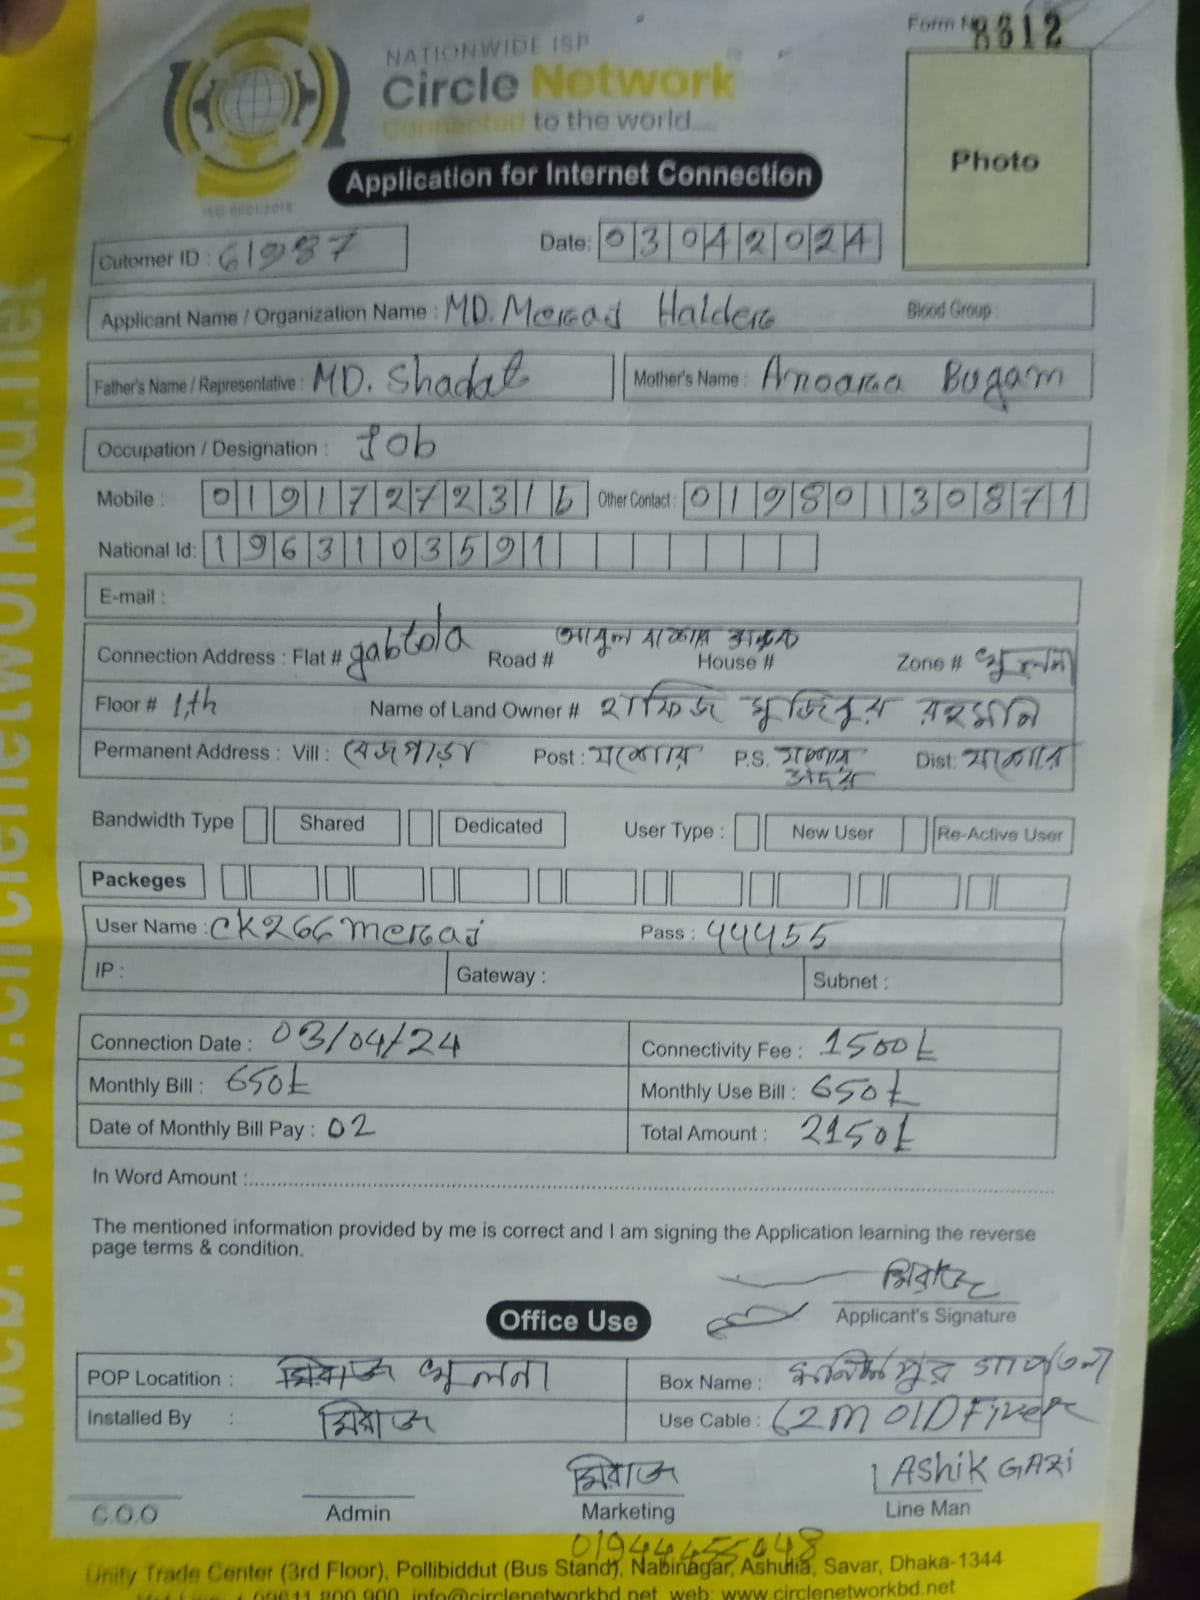 Form No 8612
NATIONWIDE ISP
Circle Network
Connected to the world....
Photo
Application for Internet Connection
ISO 9001:2015
Cutomer ID : 61987 Date: 03042024
Applicant Name / Organization Name : MD. Meraj Halder Blood Group :
Father's Name / Representative : MD. Shadat Mother's Name : Anoara Bugam
Occupation / Designation : Job
Mobile : 01917272316 Other Contact : 01980130871
National Id: 1963103591
E-mail :
Connection Address : Flat # gabtola Road # House # Zone # খুলনা
Floor # 1,th Name of Land Owner # হাফিজ মুজিবুর রহমান
Permanent Address : Vill : বেজপাড়া Post : যশোর P.S. যশোর সদর Dist: যশোর
Bandwidth Type Shared Dedicated User Type : New User Re-Active User
Packeges
User Name : CK266meraj Pass : 44455
IP : Gateway : Subnet :
Connection Date : 03/04/24 Connectivity Fee : 1500t
Monthly Bill : 650t Monthly Use Bill : 650t
Date of Monthly Bill Pay : 02 Total Amount : 2150t
In Word Amount :
The mentioned information provided by me is correct and I am signing the Application learning the reverse
page terms & condition.
মিরাজ
Applicant's Signature
Office Use
POP Locatition : খুলনা Box Name :
Installed By : মিরাজ Use Cable : 62m OlD Fiver
মিরাজ Ashik GAZi
C.O.O Admin Marketing Line Man
01944455048
Unity Trade Center (3rd Floor), Pollibiddut (Bus Stand), Nabinagar, Ashulia, Savar, Dhaka-1344
09611 800 900, info@circlenetworkbd.net, web: www.circlenetworkbd.net
web: www.circlenetworkbd.net